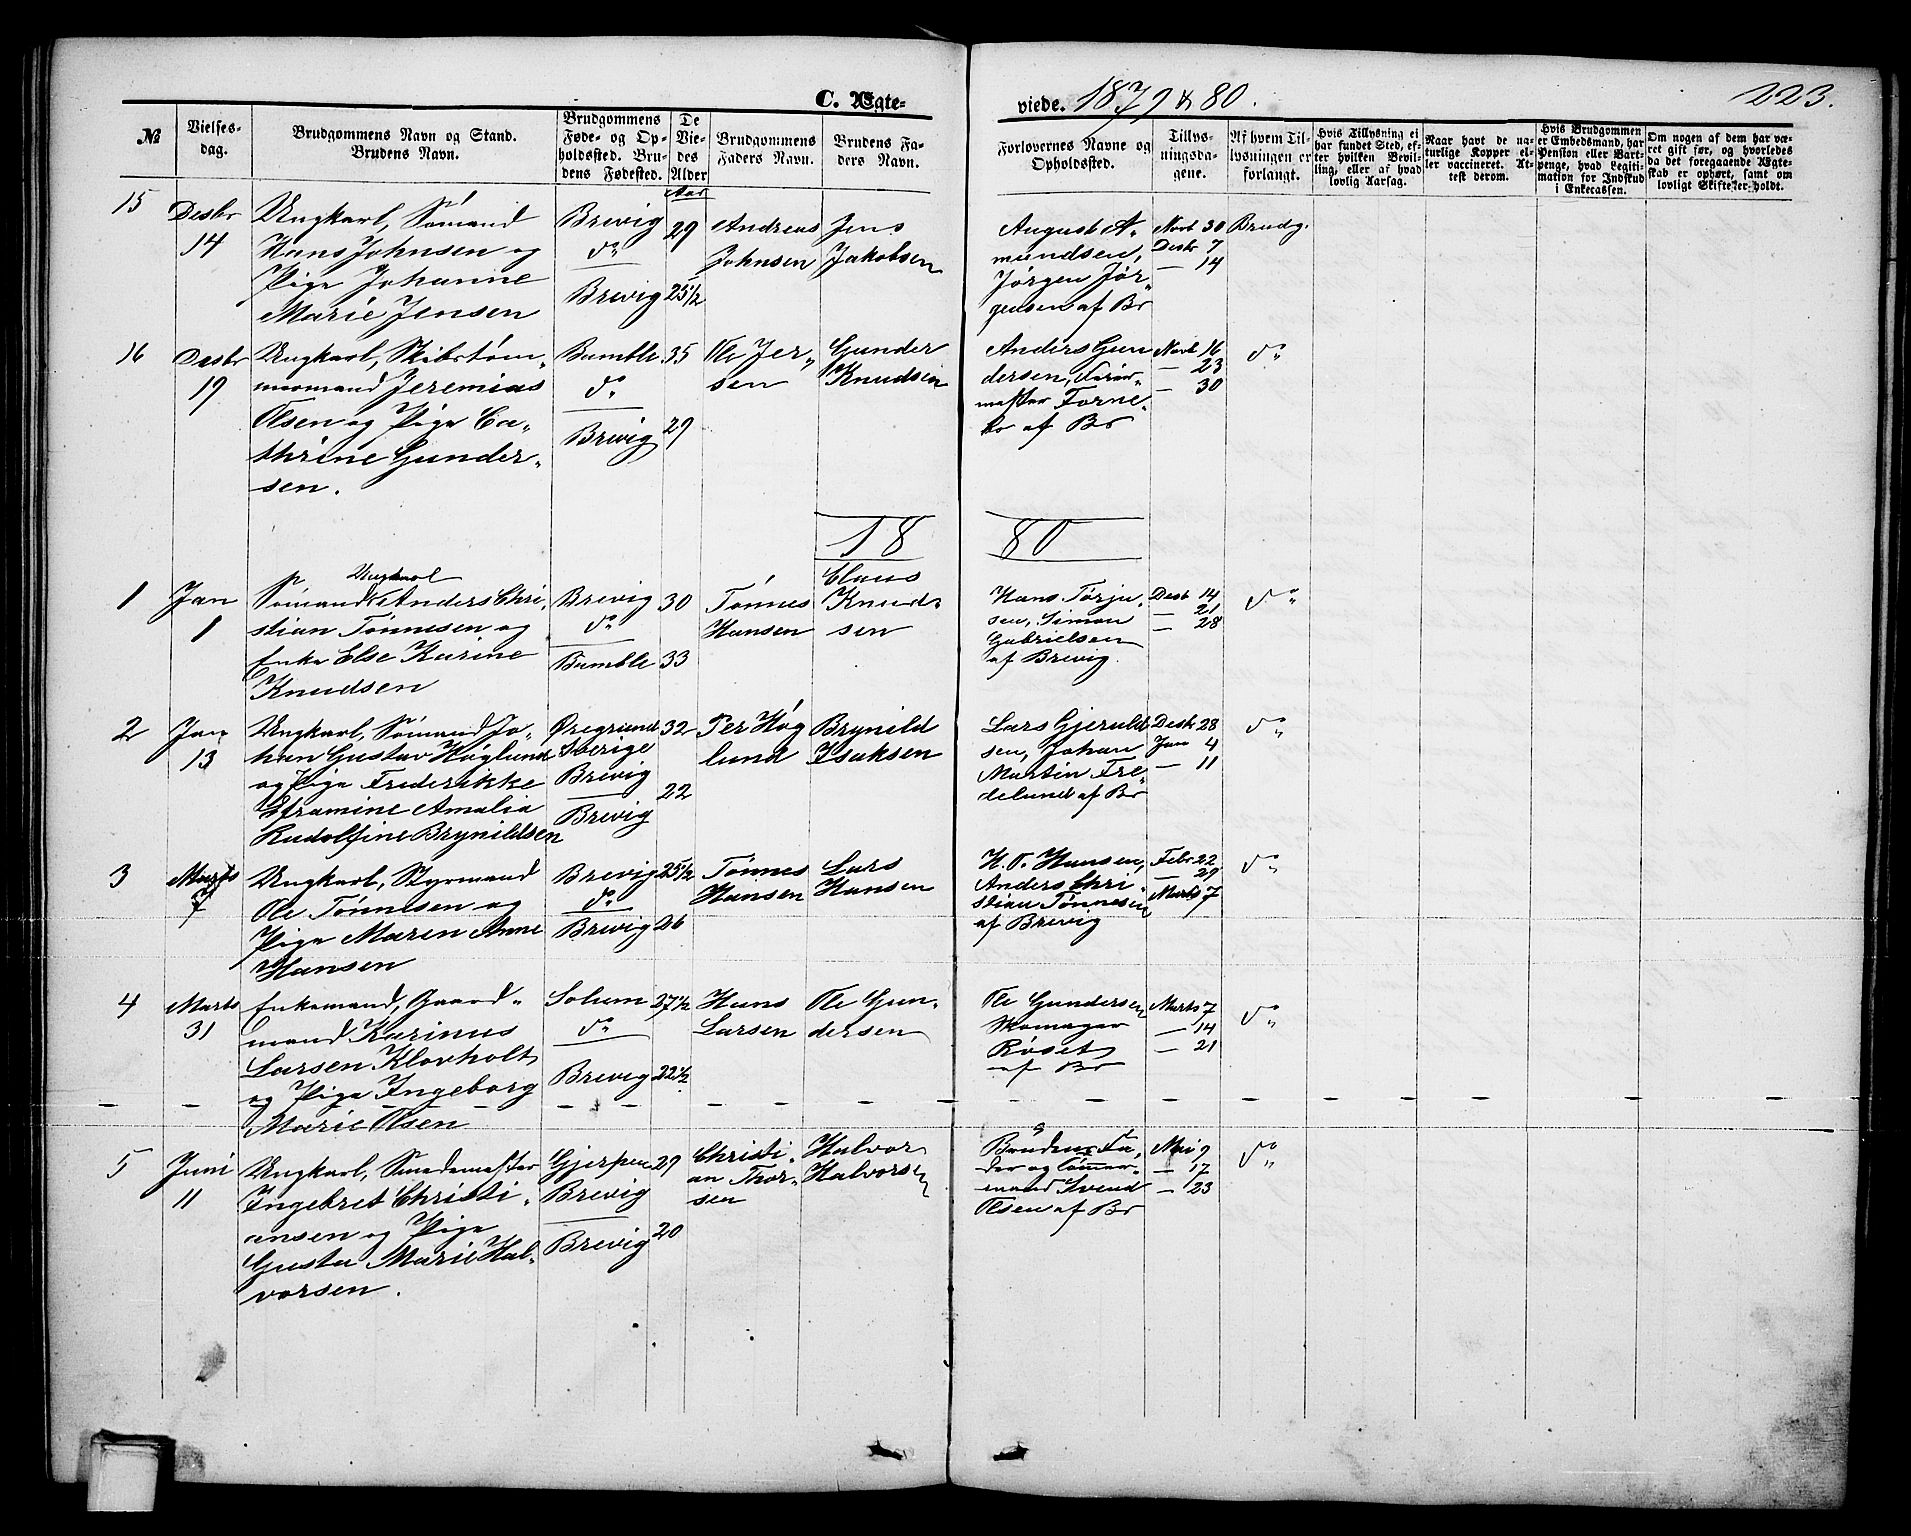 C. Ægte-
viede. 1879 & 80.
223.
№
Vielses-
dag.
Brudgommens Navn og Stand.
Brudens Navn.
Brudgommens
Føde- og Op-
holdssted. Bru-
dens Fødested.
De
Vie-
des
Alder
Brudgommens
Faders Navn.
Brudens Fa-
ders Navn.
Forlovernes Navne og
Opholdssted.
Tillys-
ningsda-
gene.
Af hvem Til-
lysningen er
forlangt.
Hvis Tillysning ei
har fundet Sted, ef-
ter hvilken Bevil-
ling, eller af hvad
lovlig Aarsag.
Naar havt de na-
turlige Kopper el-
ler vaccineret. At-
test derom.
Hvis Brudgommen
er Embedsmand, har
Pension eller Vart-
penge, hvad Legiti-
mation for Indskud
i Enkecassen.
Om nogen af dem har væ-
ret gift før, og hvorledes
da det foregaaende Ægte-
skab er ophørt, samt om
lovligt Skifte er holdt.
Aar
15
Desbr
14
Ungkarl, Sømand
Hans Johnsen og
Pige Johanne
Marie Jensen
Brevig
do
Brevig
29
25 1/2
Andreas
Johnsen
Jens
Jakobsen
August A-
mundsen,
Jørgen Jør-
gensen af Br
Novb 30
Desbr 7
— 14
Brudg.
16
Desbr
19
Ungkarl, Skibstøm-
mermand Jeremias
Olsen og Pige Ca-
thrine Gunder-
sen.
Bamble
do
Brevig
35
29
Ole Jer-
sen
Gunder
Knudsen
Anders Gun
dersen,
af Br
Novb 16
— 23
— 30
do
18 80
1
Jan
1
Ungkarl
Sømand Anders Chri-
stian Tønnesen og
Enke Else Karine
Knudsen
Brevig
do
Bamble
30
33
Tønnes
Hansen
Claus
Knud-
sen
Hans Tørju-
sen, Simon
Gabrielsen
af Brevig.
Desb 14
— 21
— 28
do
2
Jan
13
Ungkarl, Sømand Jo-
han Gustav Høglund
og Pige Frederikke
Eframine Amalia
Rudolfine Brynildsen
Øregrund
Sverige
Brevig
Brevig
32
22
Per Høg
lund
Brynild
Isaksen
Lars Gjeruld
sen, Johan
Martin Fre-
delund af Br
Desbr 28
Jan 4
— 11
do
3
Marts
7
Ungkarl, Styrmand
Ole Tønnesen og
Pige Maren Anne
Hansen
Brevig
do
Brevig
25 1/2
26
Tønnes
Hansen
Lars
Hansen
H. T. Hansen,
Anders Chri-
stian Tønnesen
af Brevig
Febr 22
— 29
Marts 7
do
4
Marts
31
Enkemand, Gaard-
mand Karinus
Larsen Klovholt
og Pige Ingeborg
Marie Olsen
Solum
do
Brevig
27 1/2
22 1/2
Hans
Larsen
Ole Gun-
dersen
Ole Gundersen
Skomager
Røset
af Br
Marts 7
— 14
— 21
do
5
Juni
11
Ungkarl, Smedemester
Ingebret Christi-
ansen og Pige
Gusta Marie Hal-
vorsen.
Gjerpen
Brevig
Brevig
29
20
Christi-
an Thor-
sen
Halvor
Halvorsen
Brudens Fa-
der og Tømmer-
mand Svend
Olsen af Br
Mai 9
— 17
— 23
do